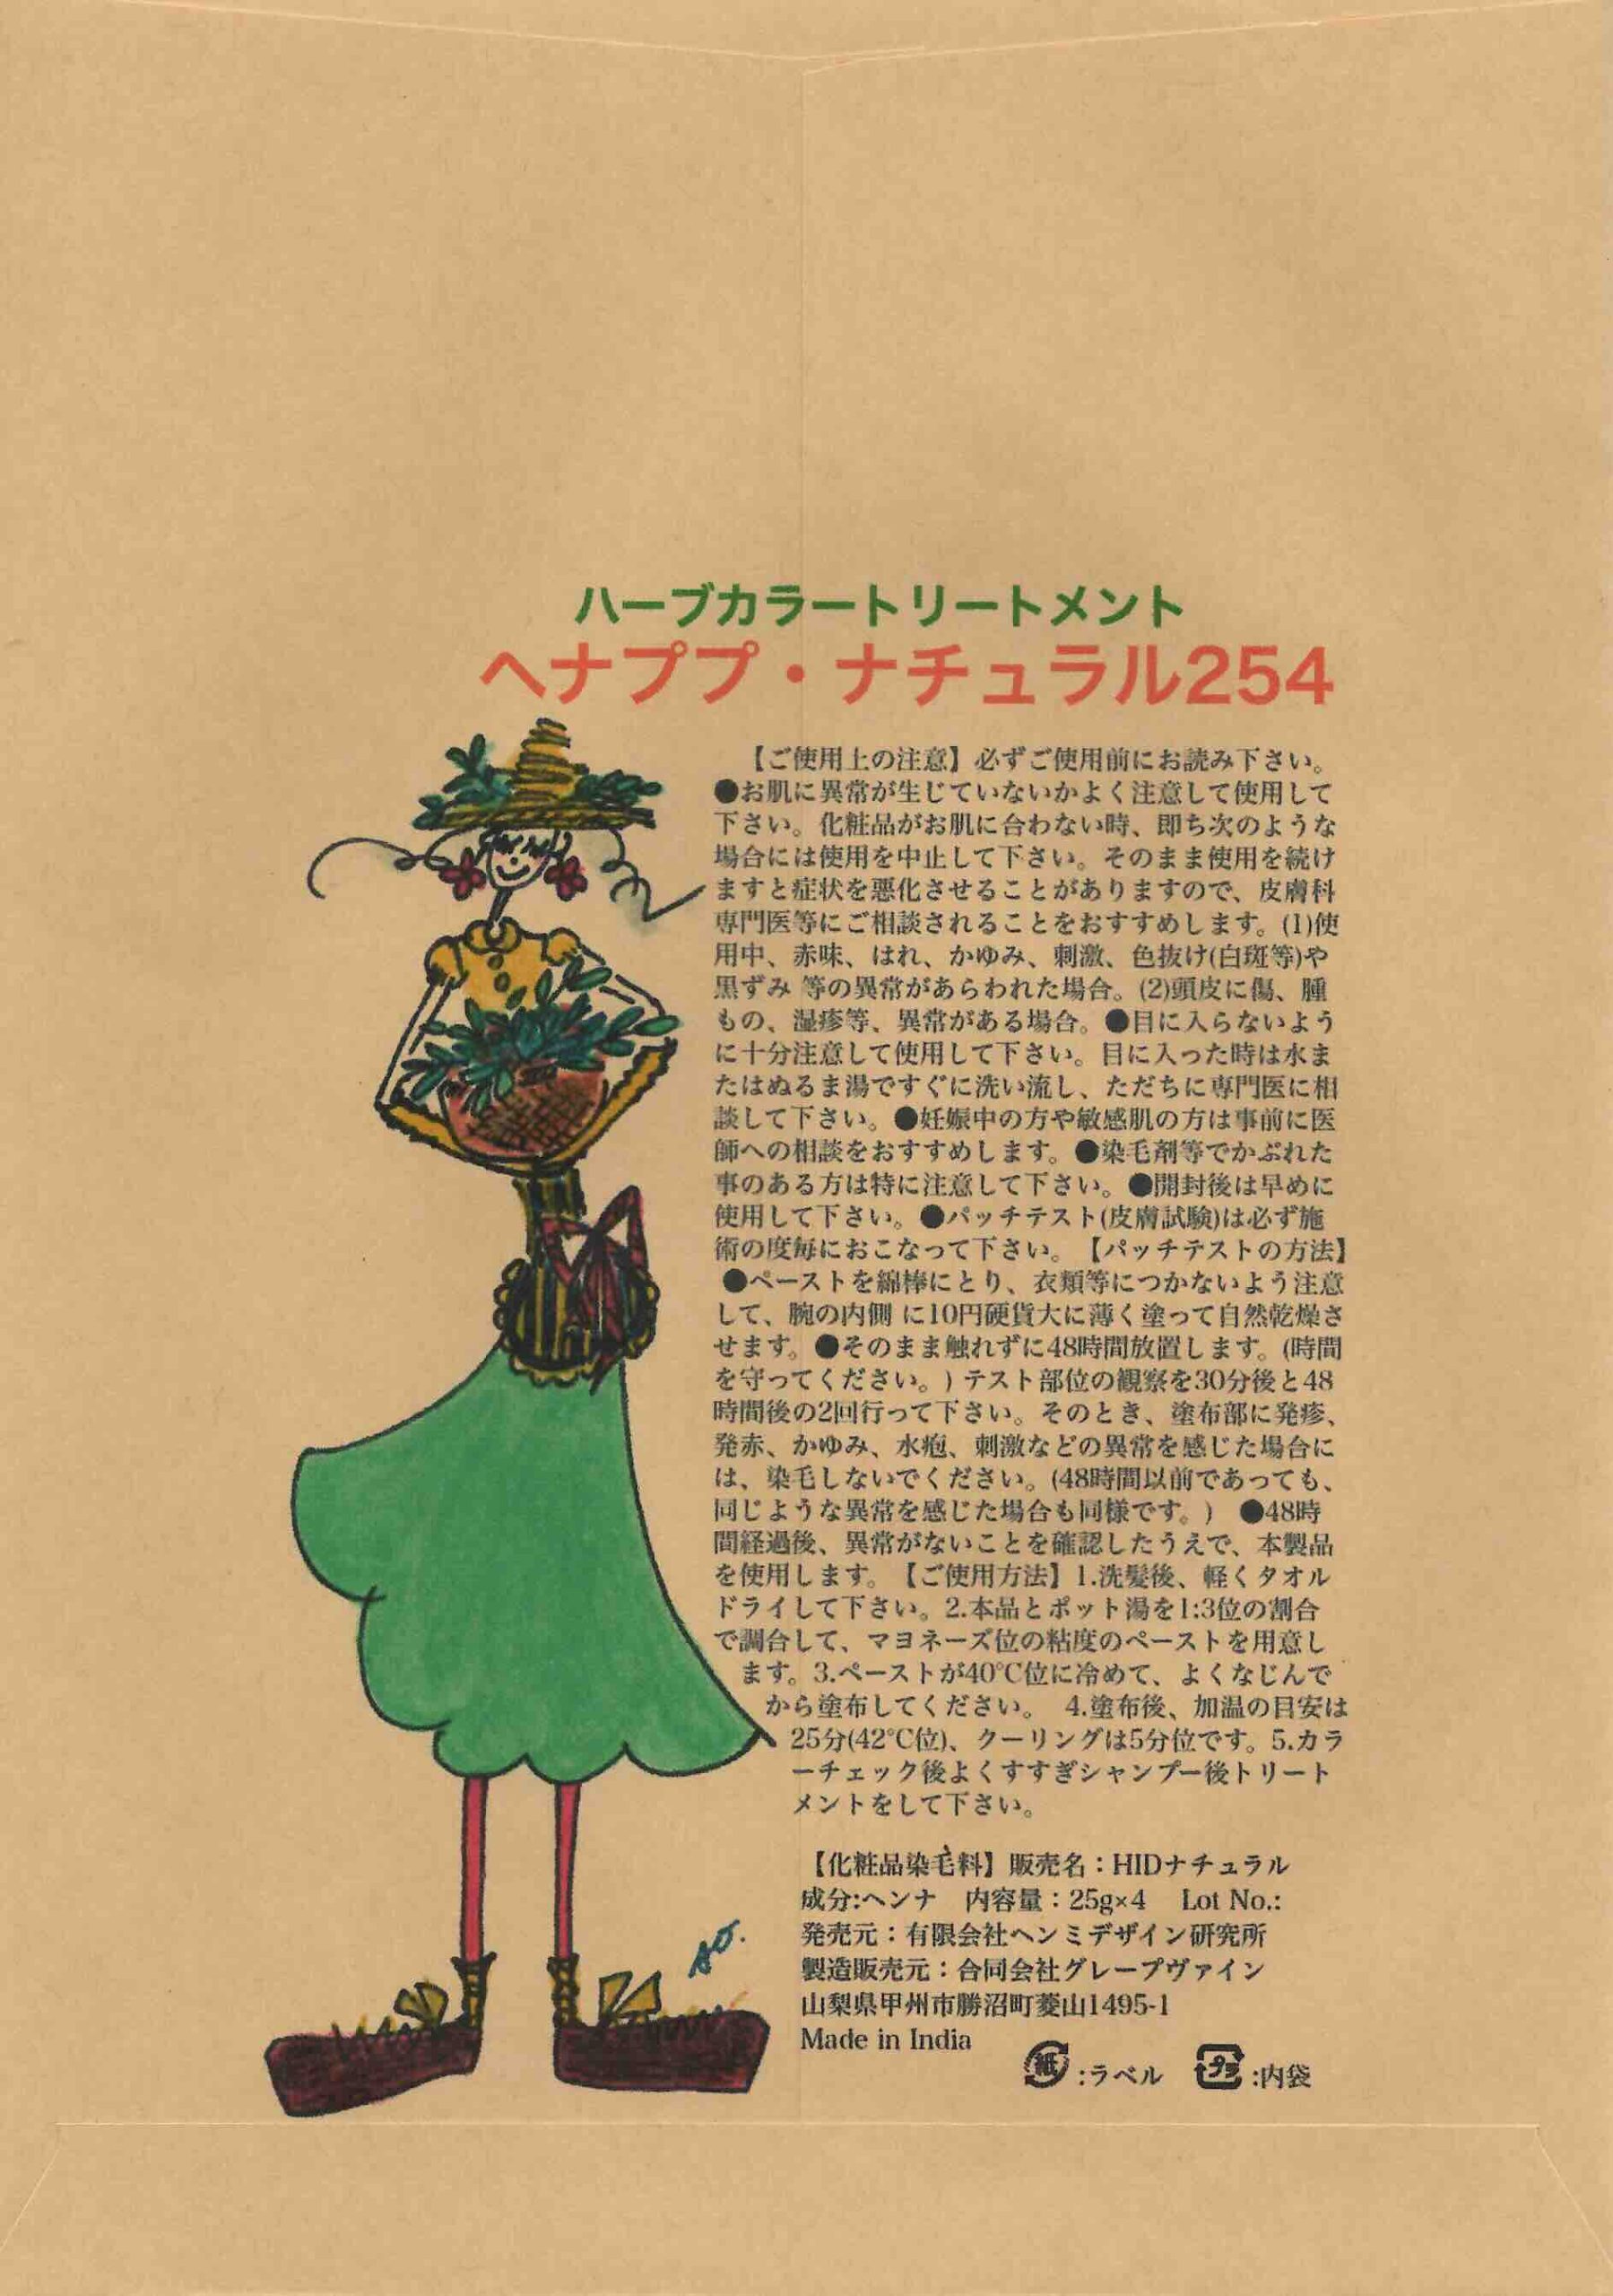 ハーブカラートリートメント
ヘナププ・ナチュラル254
【ご使用上の注意】必ずご使用前にお読み下さい。
●お肌に異常が生じていないかよく注意して使用して
下さい。化粧品がお肌に合わない時、即ち次のような
場合には使用を中止して下さい。そのまま使用を続け
ますと症状を悪化させることがありますので、皮膚科
専門医等にご相談されることをおすすめします。(1)使
用中、赤味、はれ、かゆみ、刺激、色抜け(白斑等)や
黒ずみ 等の異常があらわれた場合。(2)頭皮に傷、腫
もの、湿疹等、異常がある場合。●目に入らないよう
に十分注意して使用して下さい。目に入った時は水ま
たはぬるま湯ですぐに洗い流し、ただちに専門医に相
談して下さい。●妊娠中の方や敏感肌の方は事前に医
師への相談をおすすめします。●染毛剤等でかぶれた
事のある方は特に注意して下さい。●開封後は早めに
使用して下さい。●パッチテスト(皮膚試験)は必ず施
術の度毎におこなって下さい。【パッチテストの方法】
●ペーストを綿棒にとり、衣類等につかないよう注意
して、腕の内側 に10円硬貨大に薄く塗って自然乾燥さ
せます。●そのまま触れずに48時間放置します。(時間
を守ってください。) テスト部位の観察を30分後と48
時間後の2回行って下さい。そのとき、塗布部に発疹、
発赤、かゆみ、水疱、刺激などの異常を感じた場合に
は、染毛しないでください。(48時間以前であっても、
同じような異常を感じた場合も同様です。) ●48時
間経過後、異常がないことを確認したうえで、本製品
を使用します。【ご使用方法】1.洗髪後、軽くタオル
ドライして下さい。2.本品とポット湯を1:3位の割合
で調合して、マヨネーズ位の粘度のペーストを用意し
ます。3.ペーストが40℃位に冷めて、よくなじんで
から塗布してください。 4.塗布後、加温の目安は
25分(42℃位)、クーリングは5分位です。5.カラ
ーチェック後よくすすぎシャンプー後トリート
メントをして下さい。
【化粧品染毛料】販売名：HIDナチュラル
成分:ヘンナ 内容量：25g×4 Lot No.:
発売元：有限会社ヘンミデザイン研究所
製造販売元：合同会社グレープヴァイン
山梨県甲州市勝沼町菱山1495-1
Made in India
紙:ラベル プラ:内袋